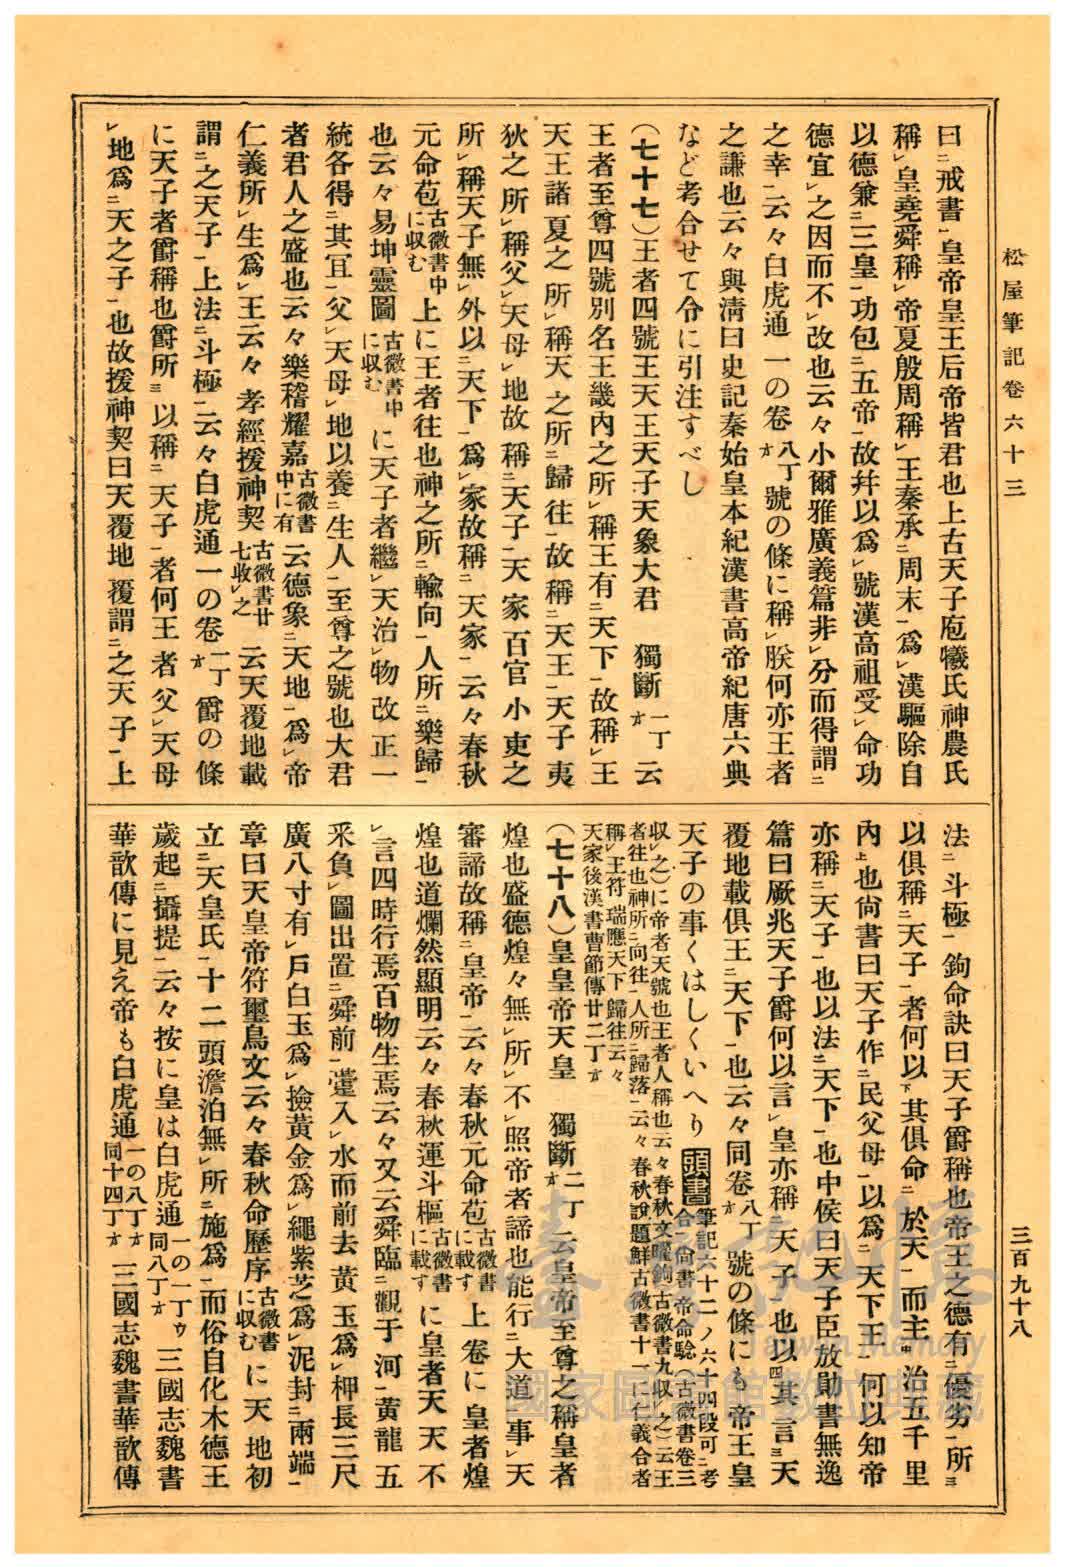 松屋筆記卷六十三
三百九十八
曰㆓戒書㆒皇帝皇王后帝皆君也上古天子庖犧氏神農氏
稱㆑皇堯舜稱㆑帝夏殷周稱㆑王秦承㆓周末㆒爲㆑漢驅除自
以德兼㆓三皇㆒功包㆓五帝㆒故幷以爲㆑號漢高祖受㆑命功
德宜㆑之因而不㆑改也云々小爾雅廣義篇非㆑分而得謂㆓
之幸㆒云々白虎通一の卷八丁オ號の條に稱㆑朕何亦王者
之謙也云々與淸曰史記秦始皇本紀漢書高帝紀唐六典
など考合せて令に引注すべし
(七十七)王者四號王天王天子天象大君　獨斷一丁オ云
王者至尊四號別名王畿內之所㆑稱王有㆓天下㆒故稱㆑王
天王諸夏之所㆑稱天之所㆓歸往㆒故稱㆓天王㆒天子夷
狄之所㆑稱父㆑天母㆑地故稱㆓天子㆒天家百官小吏之
所㆑稱天子無㆑外以㆓天下㆒爲㆑家故稱㆓天家㆒云々春秋
元命苞古微書中に収む上に王者往也神之所㆓輸向㆒人所㆓樂歸㆒
也云々易坤靈圖古微書中に収むに天子者繼㆑天治㆑物改正一
統各得㆓其宜㆒父㆑天母㆑地以養㆓生人㆒至尊之號也大君
者君人之盛也云々樂稽耀嘉古微書中に有云德象㆓天地㆒爲㆑帝
仁義所㆑生爲㆑王云々孝經援神契古微書廿七收㆑之云天覆地載
謂㆓之天子㆒上法㆓斗極㆒云々白虎通一の卷一丁オ爵の條
に天子者爵稱也爵所㆔以稱㆓天子㆒者何王者父㆑天母
㆑地爲㆓天之子㆒也故援神契曰天覆地覆謂㆓之天子㆒上
法㆓斗極㆒鉤命訣曰天子爵稱也帝王之德有㆓優劣㆒所㆔
以俱稱㆓天子㆒者何以㆘其俱命㆓於天㆒而主㆗治五千里
內㆖也尙書曰天子作㆓民父母㆒以爲㆓天下王㆒何以知帝
亦稱㆓天子㆒也以法㆓天下㆒也中候曰天子臣放勛書無逸
篇曰厥兆天子爵何以言㆑皇亦稱㆓天子㆒也以㆘其言㆔天
覆地載俱王㆓天下㆒也云々同卷八丁オ號の條にも帝王皇
天子の事くはしくいへり頭書筆記六十二ノ六十四段可㆓考合㆒尙書帝命驗(古微書卷三
収㆑之)に帝者天號也王者人稱也云々春秋文曜鉤(古微書九収㆑之)云王
者往也神所㆓向往㆒人所㆓歸落㆒云々春秋說題辭古微書十一に仁義合者
稱㆑王符瑞應天下歸往云々
天家後漢書曹節傳廿二丁オ
(七十八)皇皇帝天皇　獨斷二丁オ云皇帝至尊之稱皇者
煌也盛德煌々無㆑所㆑不㆑照帝者諦也能行㆓大道㆒事㆑天
審諦故稱㆓皇帝㆒云々春秋元命苞古微書に載す上卷に皇者煌
煌也道爛然顯明云々春秋運斗樞古微書に載すに皇者天天不
㆑言四時行焉百物生焉云々又云舜臨㆓觀于河㆒黃龍五
釆負㆑圖出置㆓舜前㆒䨥入㆑水而前去黃玉爲㆑柙長三尺
廣八寸有㆑戶白玉爲㆑撿黃金爲㆑繩紫芝爲㆑泥封㆓兩端㆒
章曰天皇帝符璽鳥文云々春秋命歷序古微書に収むに天地初
立㆓天皇氏㆒十二頭澹泊無㆑所㆓施爲㆒而俗自化木德王
歲起㆓攝提㆒云々按に皇は白虎通一の一丁ウ同八丁オ三國志魏書
華歆傳に見え帝も白虎通一の八丁オ同十四丁オ三國志魏書華歆傳
臺灣記憶
Taiwan Memory
國家圖書館數位典藏